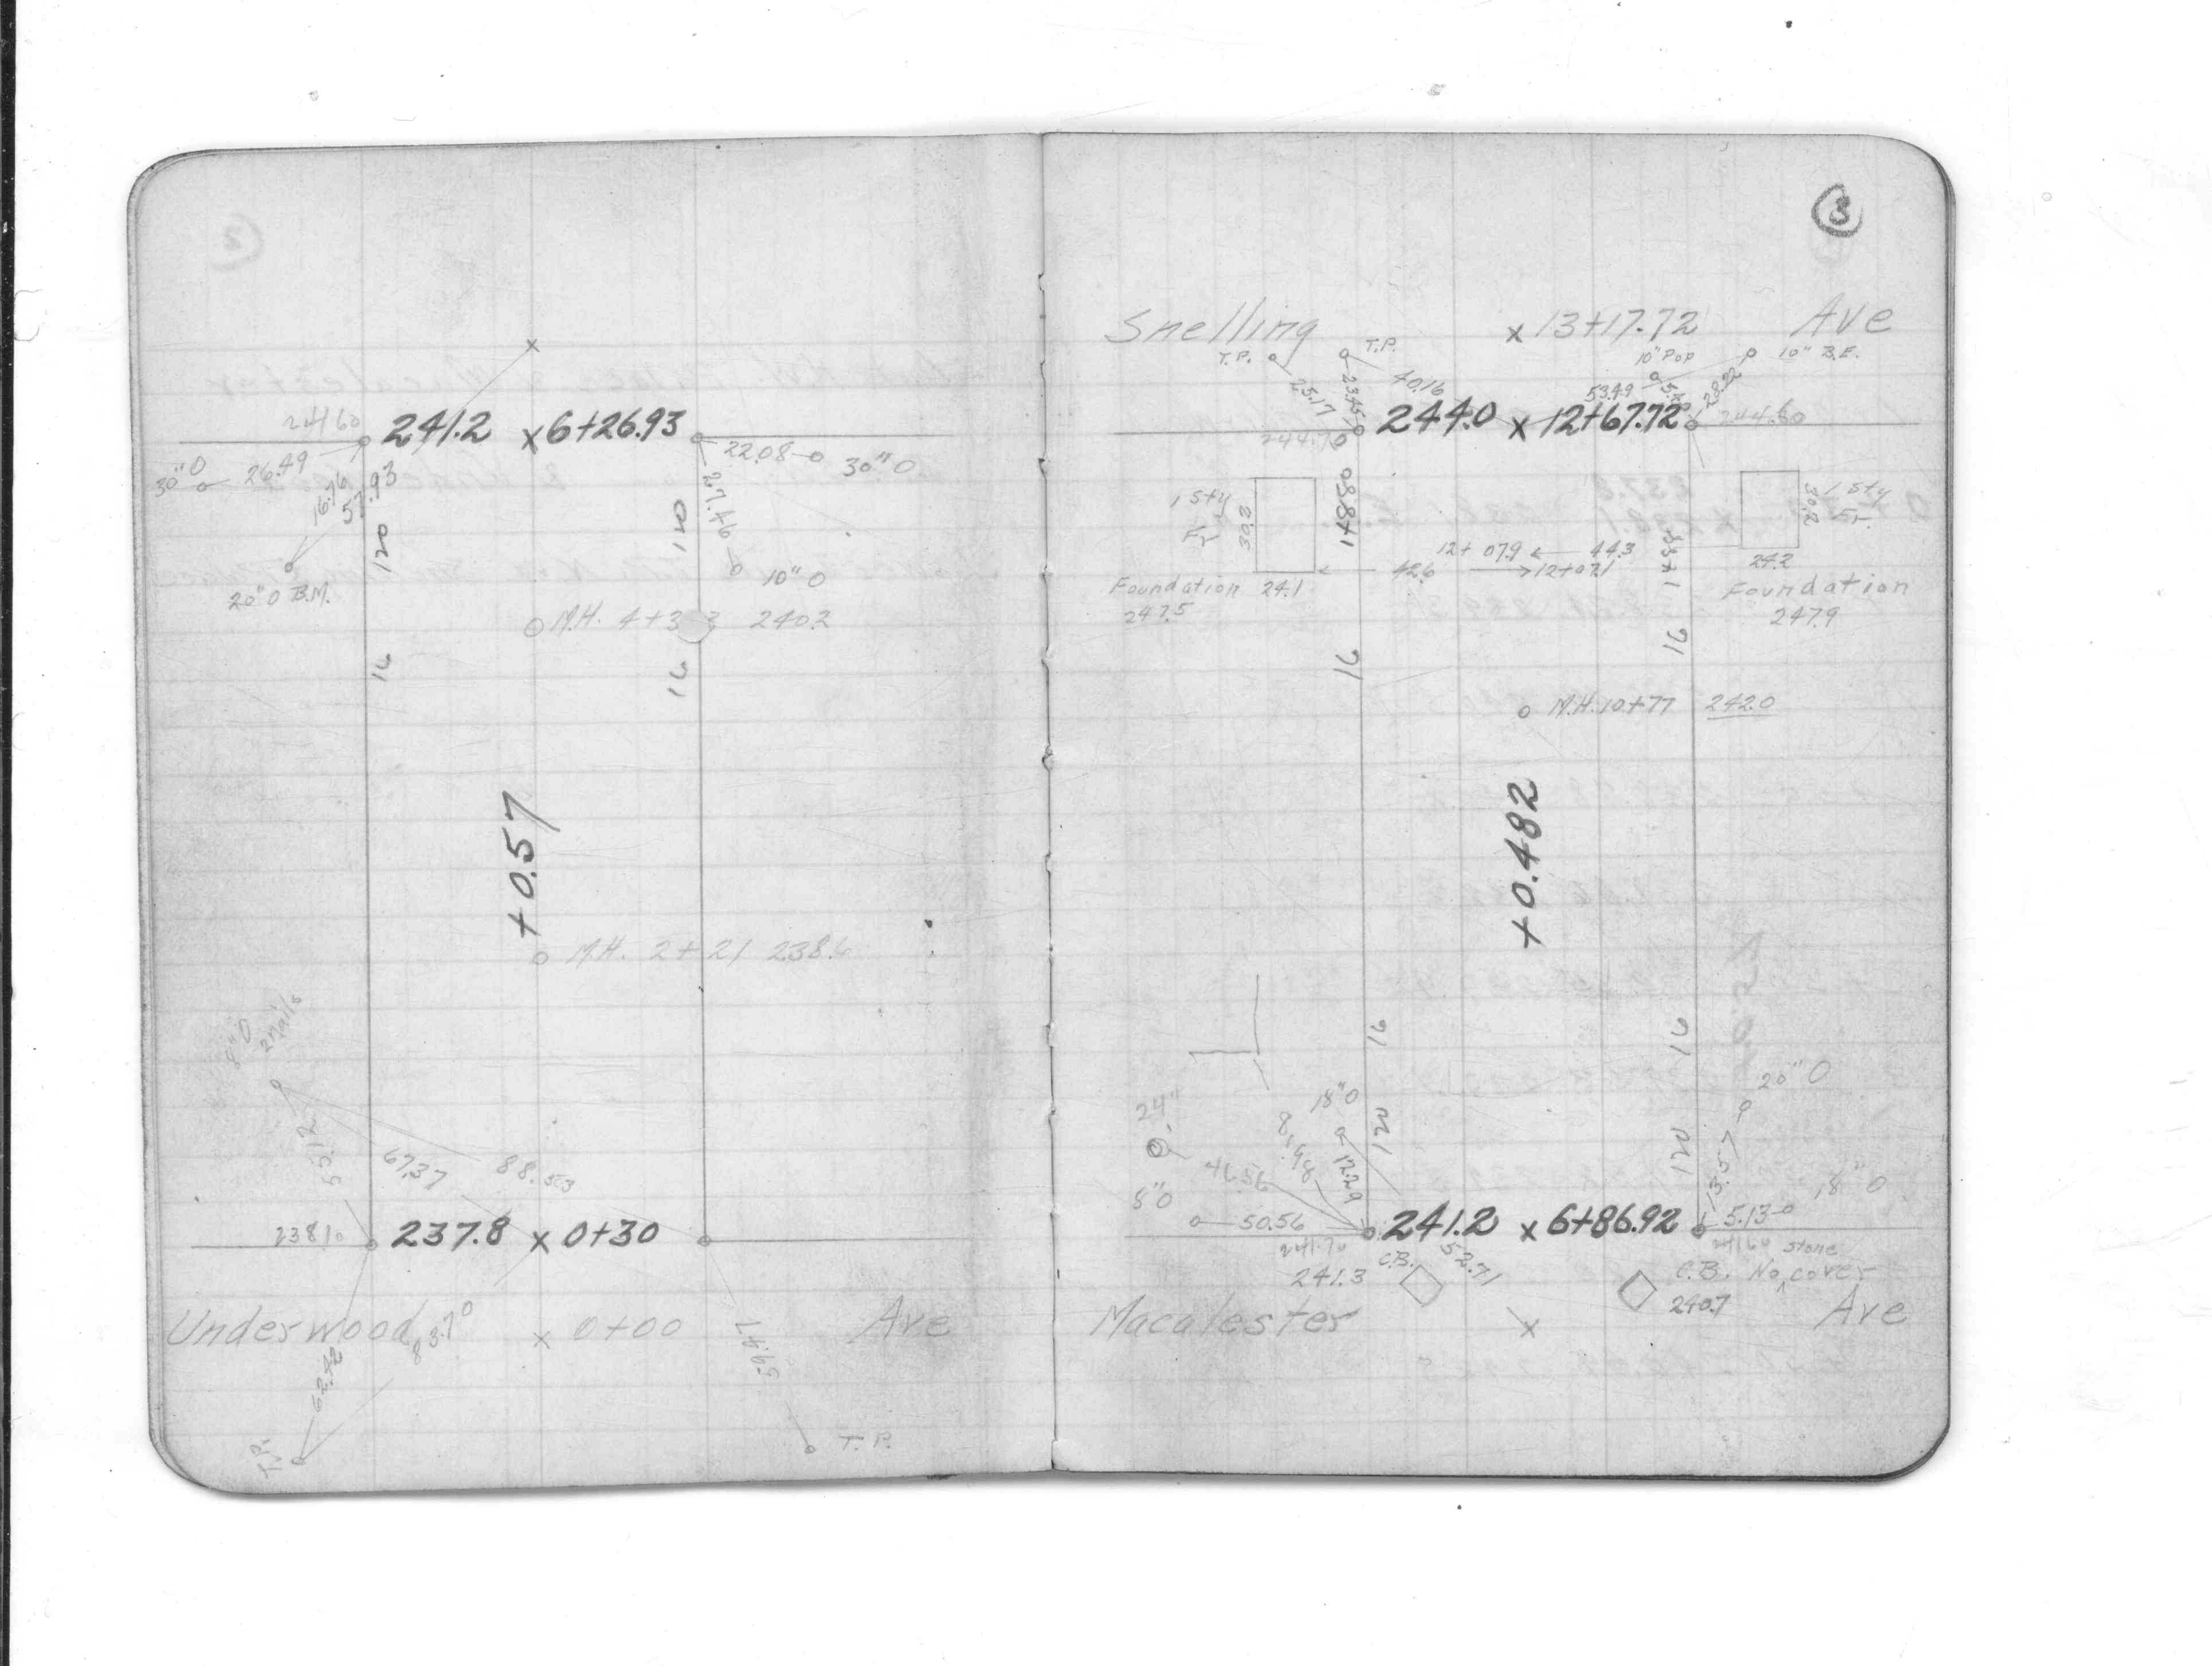 241.60
241.2 x 6+26.93
30" O 26.49
22.08 30" O
16.76
57.93
27.46
120
120
20" O B.M.
10" O
M.H. 240.2
16
16
+0.57
M.H. 2+21 238.6
8" O
2 nails
55.12
67.37
88.503
238.10
237.8 x 0+30
Underwood x 0+00 Ave
83.70
62.42
59.47
T.P.
T.P.
3
Snelling x 13+17.72 Ave
T.P. T.P. 10" Pop 10" B.E.
25.17
23.45
40.16
53.49
28.22
244.0 x 12+67.72
244.70
244.60
1 sty
Fr
39.3
148.80
1 sty
Fr.
30.2
12+07.9 44.3
42.6 12+07.1
Foundation 24.1
247.5
24.2
Foundation
247.9
16
16
M.H. 10+77 242.0
+0.482
16
16
20" O
18" O
24"
121
120
46.56
12.29
8" O
50.56
13.57
5.13
18" O
241.2 x 6+86.92
241.70
52.71
241.60 stone
241.3 C.B.
C.B. No cover
240.7
Macalester x Ave